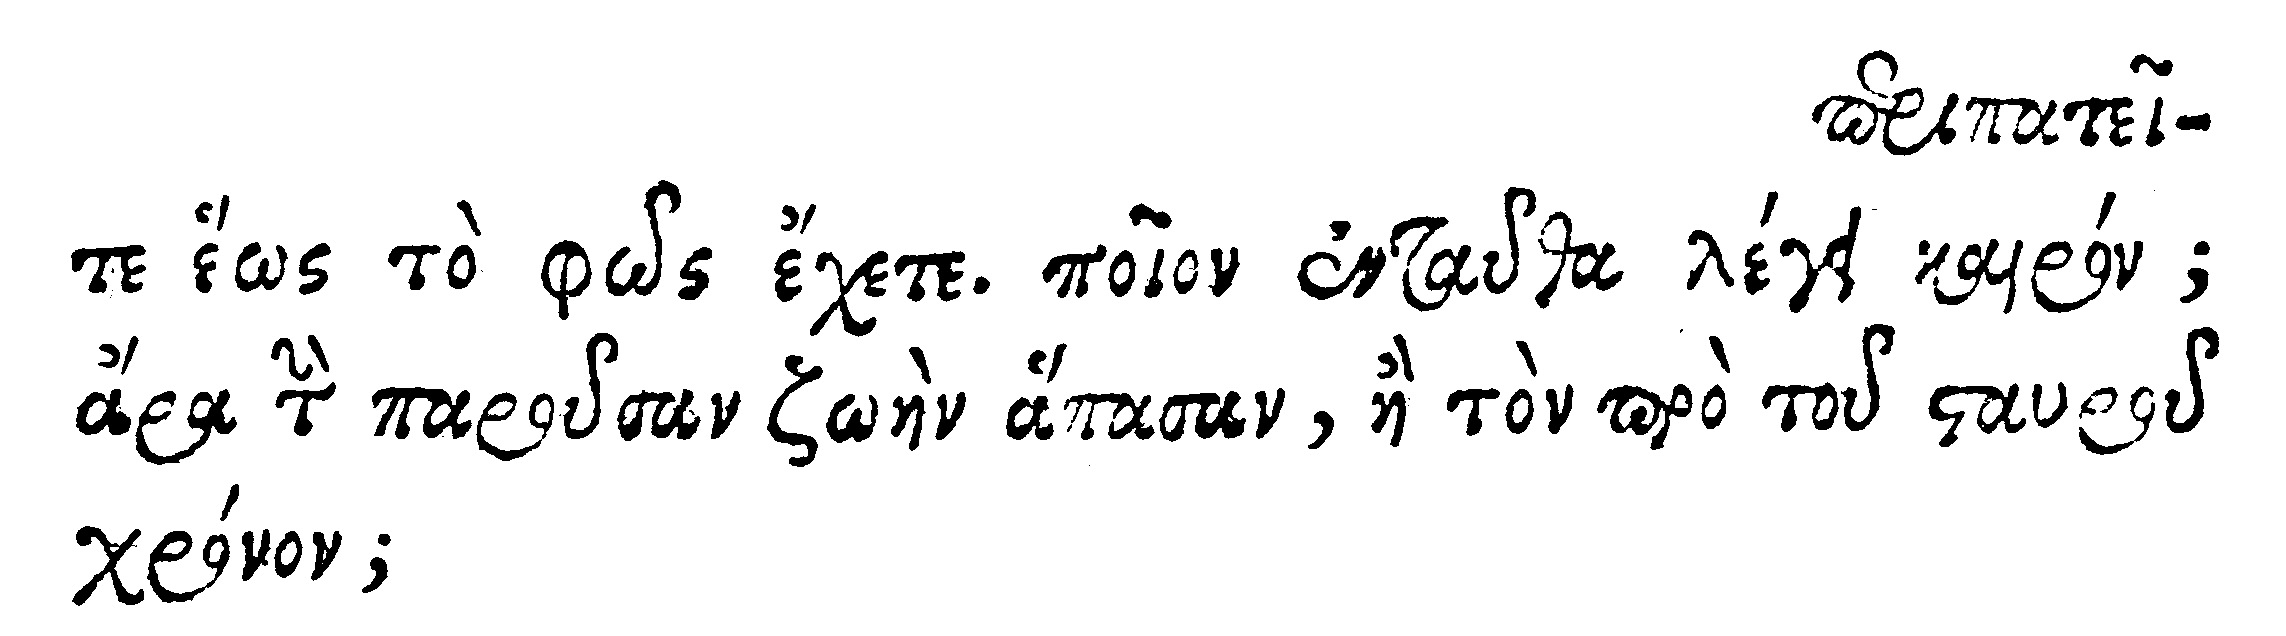 περιπατεῖ-
τε ἕως τὸ φῶς ἔχετε. ποῖον ἐνταῦθα λέγει καιρόν;
ἄρα τὴν παροῦσαν ζωὴν ἅπασαν, ἢ τὸν πρὸ τοῦ σταυροῦ
χρόνον;